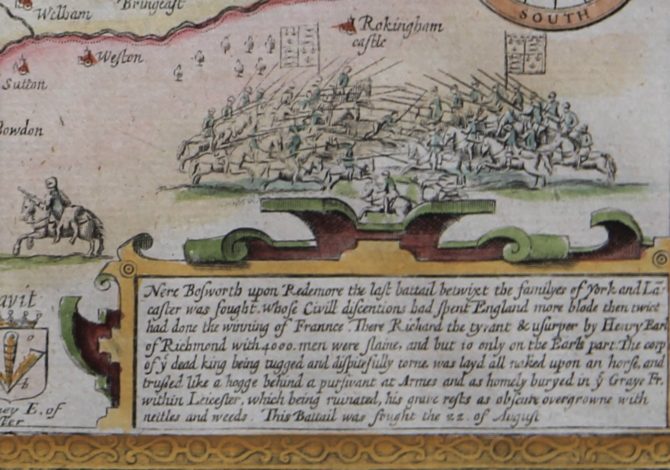 Welham
Bringest
Weston
Sutton
owdon
Rokingham
castle
SOUTH
avit
ey E. of
ter
Nere Bosworth upon Redemore the last battail betwixt the familyes of York and Lā
caster was fought, whose Civill discentions had spent England more blode then twice
had done the winning of Frannce. There Richard the tyrant & usurper by Henry Earl
of Richmond with 4000. men were slaine, and but 10 only on the Earls part The corp
of ẏ dead king being tugged and dispitefully torne was layd all naked upon an horse, and
trused like a hogge behind a pursivant at Armes and as homely buryed in ẏ Graye Fr.
within Leicester, which being ruinated, his grave rests as obscure overgrowne with
nettles and weeds. This Battail was fought the 22. of August